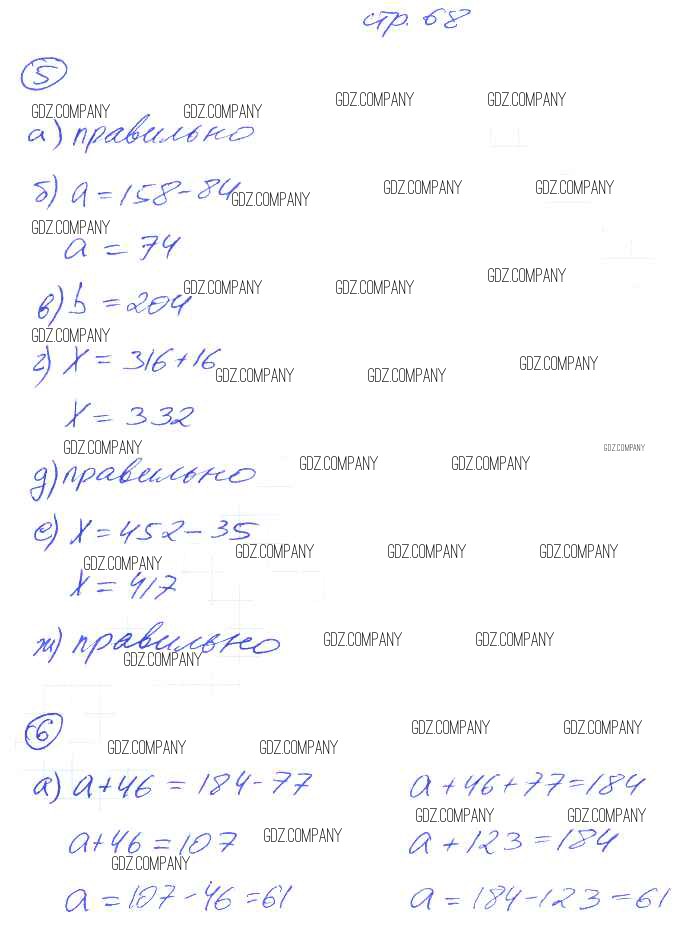 стр. 68
5
GDZ.COMPANY GDZ.COMPANY GDZ.COMPANY GDZ.COMPANY
а) правильно
б) a = 158 - 84
GDZ.COMPANY GDZ.COMPANY GDZ.COMPANY
GDZ.COMPANY
a = 74
GDZ.COMPANY GDZ.COMPANY GDZ.COMPANY
в) b = 204
GDZ.COMPANY
г) x = 316 + 16
GDZ.COMPANY GDZ.COMPANY GDZ.COMPANY
x = 332
GDZ.COMPANY GDZ.COMPANY GDZ.COMPANY GDZ.COMPANY
д) правильно
е) x = 452 - 35
GDZ.COMPANY GDZ.COMPANY GDZ.COMPANY
GDZ.COMPANY
x = 417
ж) правильно
GDZ.COMPANY GDZ.COMPANY
GDZ.COMPANY
6
GDZ.COMPANY GDZ.COMPANY
GDZ.COMPANY GDZ.COMPANY
а) a + 46 = 184 - 77 a + 46 + 77 = 184
GDZ.COMPANY GDZ.COMPANY
a + 46 = 107 GDZ.COMPANY a + 123 = 184
GDZ.COMPANY
a = 107 - 46 = 61 a = 184 - 123 = 61